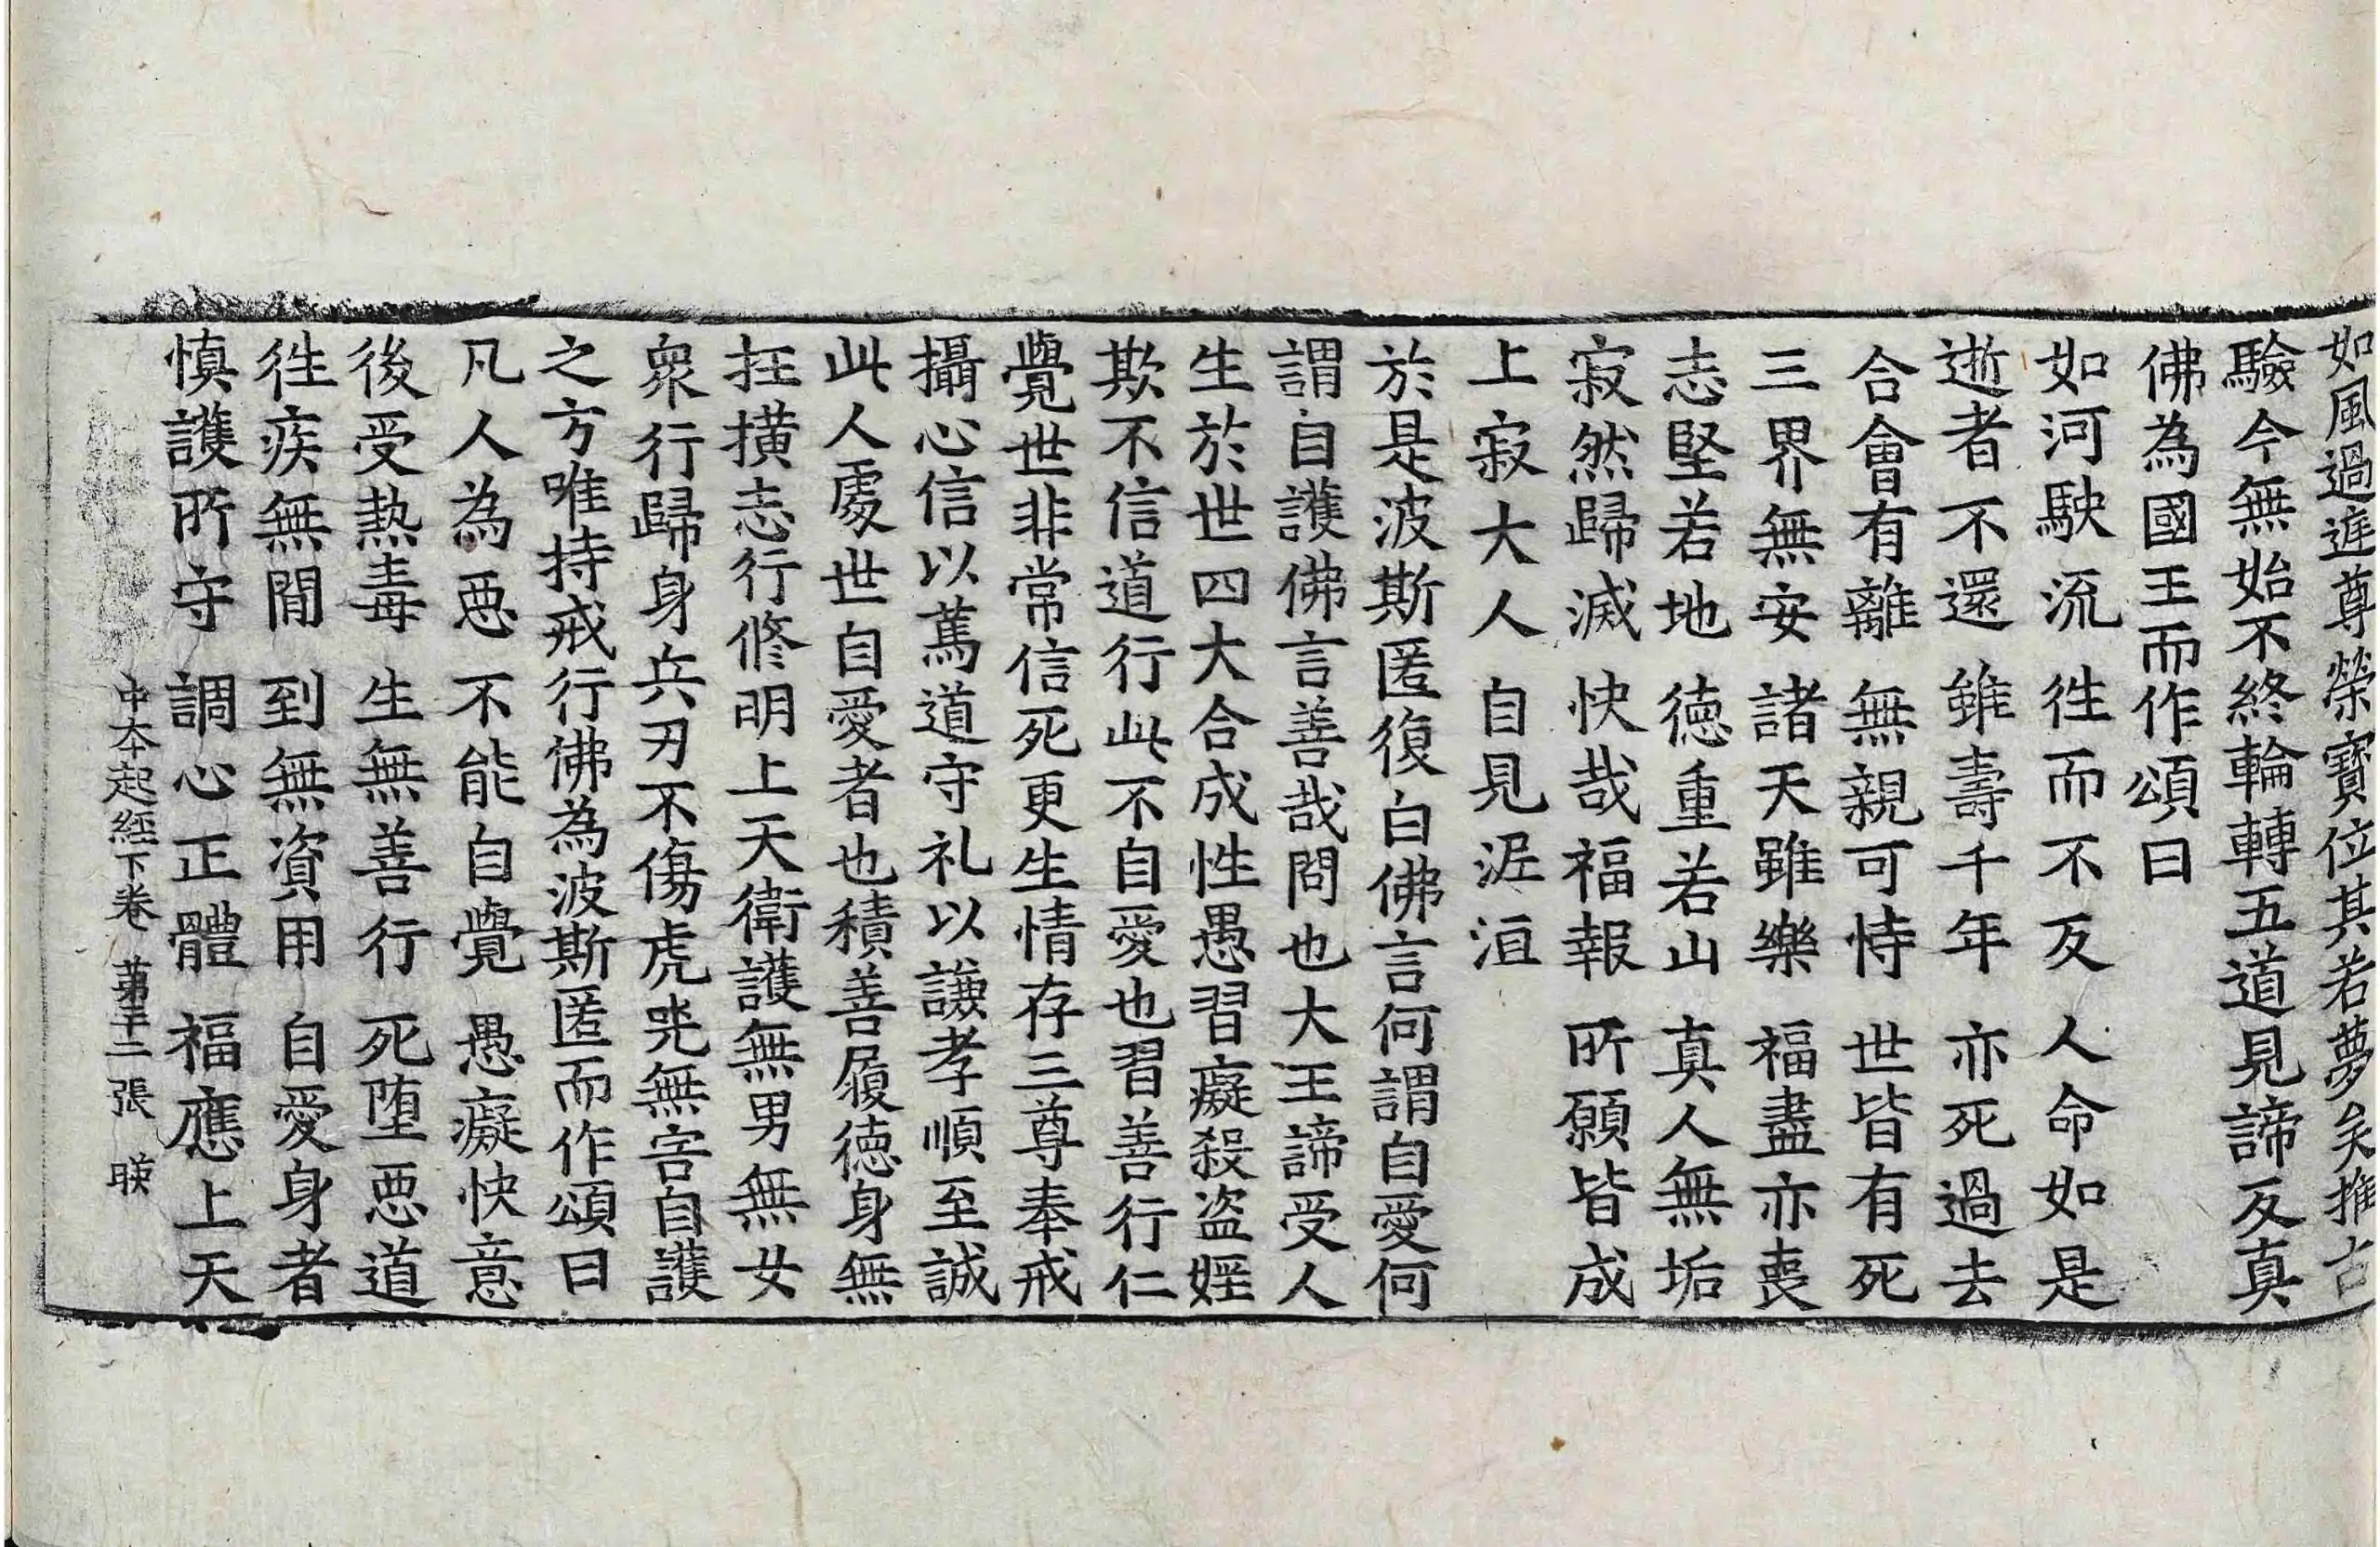 如風過逬尊榮寶位其若夢矣推古
驗今無始不終輪轉五道見諦反真
佛為國王而作頌曰
如河駛流 徃而不反 人命如是
逝者不還 雖壽千年 亦死過去
合會有離 無親可恃 世皆有死
三界無安 諸天雖樂 福盡亦喪
志堅若地 德重若山 真人無垢
寂然歸滅 快哉福報 所願皆成
上寂大人 自見泥洹
於是波斯匿復白佛言何謂自愛何
謂自護佛言善哉問也大王諦受人
生於世四大合成性愚習癡殺盗婬
欺不信道行此不自愛也習善行仁
覺世非常信死更生情存三尊奉戒
攝心信以篤道守礼以謙孝順至誠
此人處世自愛者也積善履德身無
抂撗志行修明上天衛護無男無女
衆行歸身兵刃不傷虎兕無害自護
之方唯持戒行佛為波斯匿而作頌曰
凡人為惡 不能自覺 愚癡快意
後受热毒 生無善行 死堕惡道
徃疾無間 到無資用 自愛身者
慎護所守 調心正體 福應上天
中本起經下卷 苐十二張